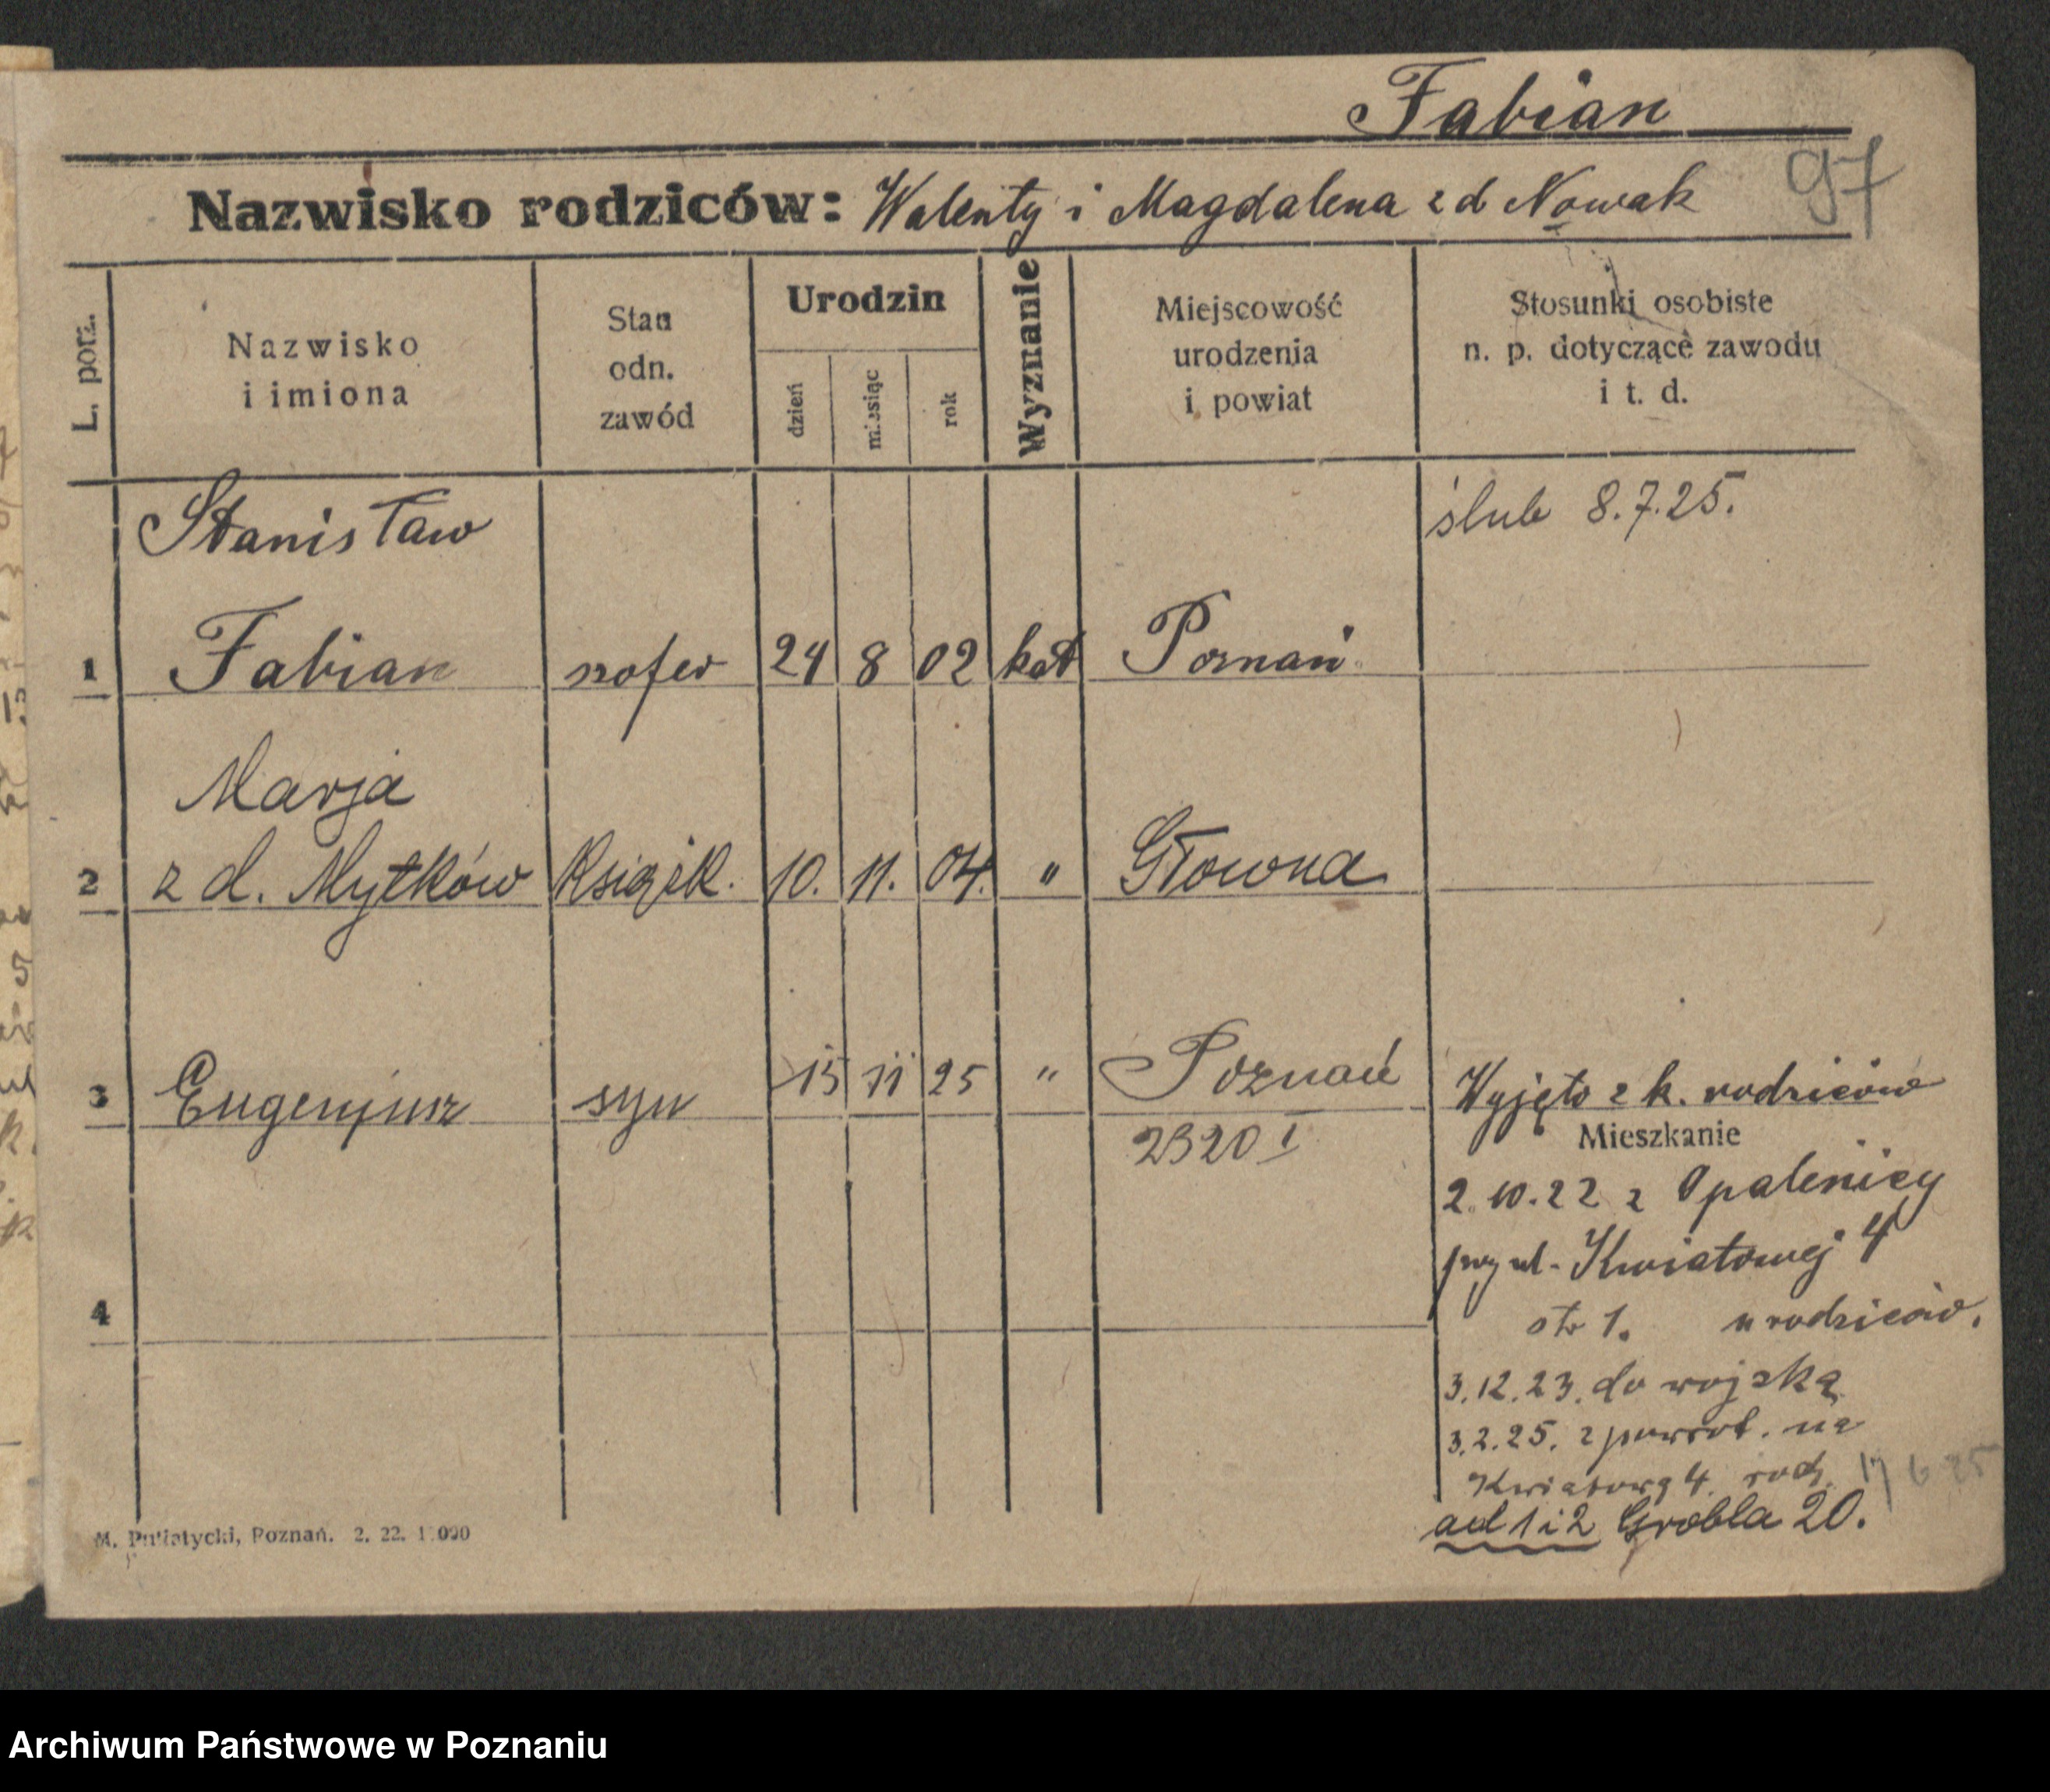 Fabian
Nazwisko rodziców: Walenty i Magdalena z d Nowak
97
L. porz.
Nazwisko
i imiona
Stan
odn.
zawód
Urodzin
dzień
miesiąc
rok
Wyznanie
Miejscowość
urodzenia
i powiat
Stosunki osobiste
n. p. dotyczące zawodu
i t. d.
Stanisław
ślub 8.7.25.
1 Fabian szofer 24 8 02 kat Poznań
Marja
2 z d. Mytków Książk. 10. 11. 04. " Głowna
3 Eugenjusz syn 15 11 25 " Poznań
Wyjęto z k. rodziców
2320 I
Mieszkanie
2.10.22 z Opalenicy
przy ul. Kwiatowej 4
4
str 1. u rodziców.
3.12.23. do wojska
3.2.25. z powrot. na
Kwiatową 4. rodz. 17 6 25
ad 1 i 2 Grobla 20.
M. Putiatycki, Poznań. 2. 22. 1 000
Archiwum Państwowe w Poznaniu